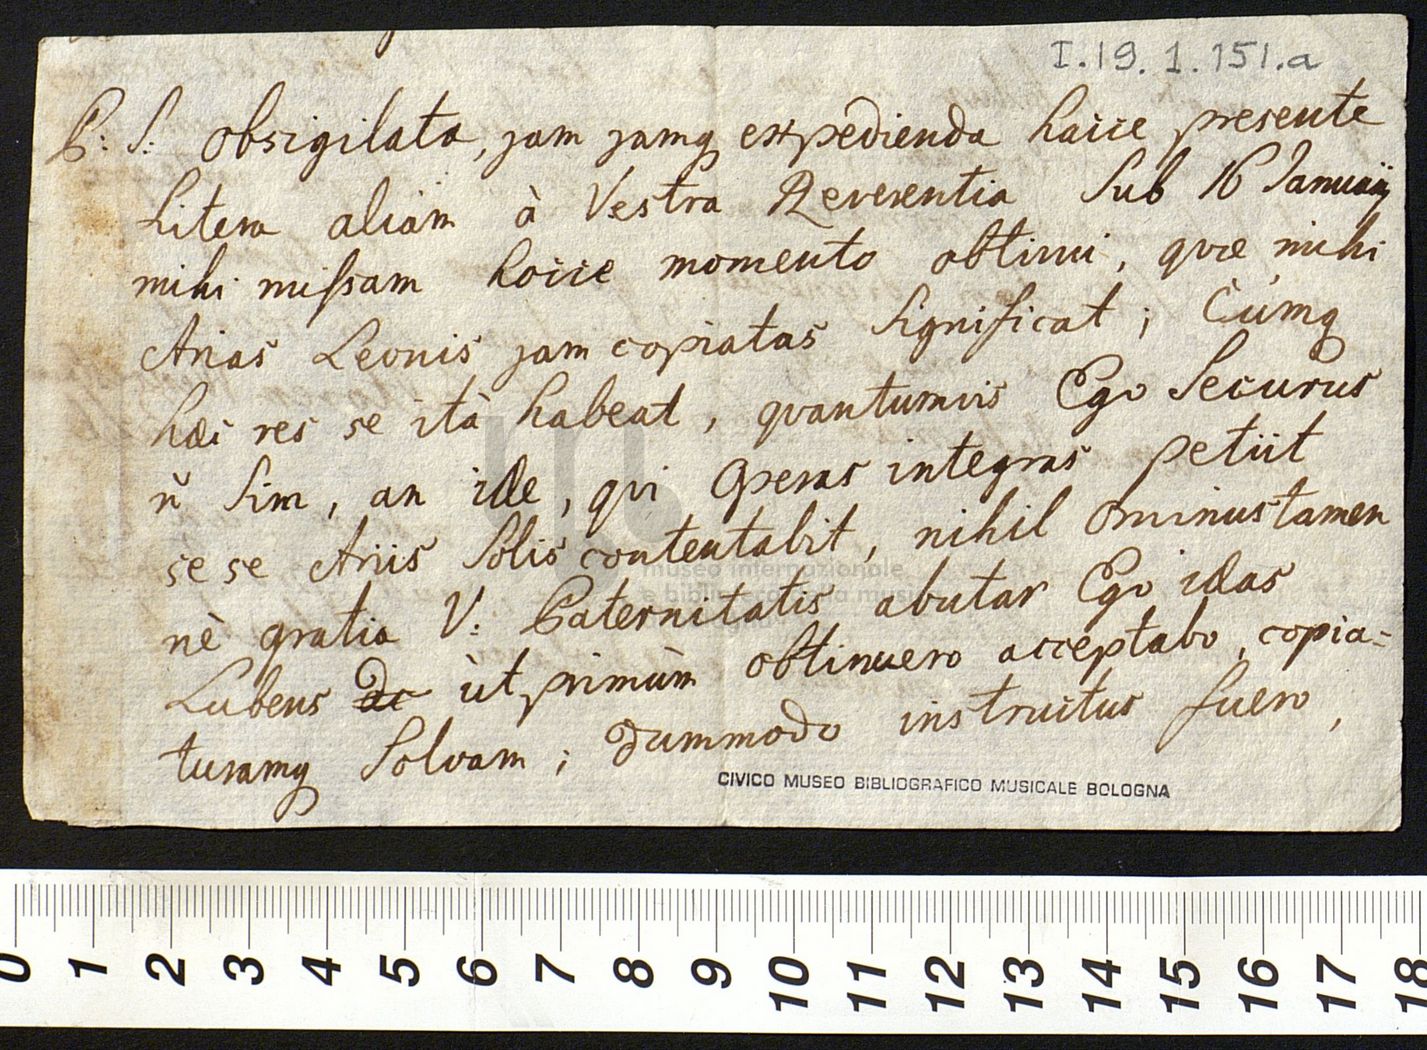 I.19.1.151.a
P: S: obsigilata, jam jamq expedienda haice presente
Litera aliam à Vestra Reverentia sub 16 Januarij
mihi missam hocce momento obtinui, quæ mihi
Arias Leonis jam copiatas significat; Cúmq
hæc res se ità habeat, quantumvis Ego securus
n̄ sim, an ide, qui Operas integras petiit
se se Ariis solis contentabit, nihil ominus tamen
nè gratia V: Paternitatis abutar Ego idas
Lubens ùt primùm obtinuero acceptabo, copia-
turamq solvam; dummodo instructus fuero,
CIVICO MUSEO BIBLIOGRAFICO MUSICALE BOLOGNA
museo internazionale
e biblioteca della musica
0 1 2 3 4 5 6 7 8 9 10 11 12 13 14 15 16 17 18